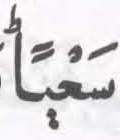 سَعْيًاؕ